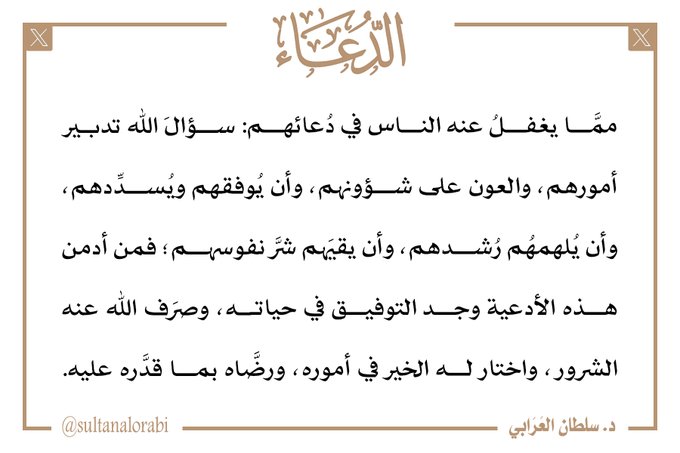 الدُّعَاء
ممَّا يغفلُ عنه الناس في دُعائهم: سؤالَ الله تدبير
أمورهم، والعون على شؤونهم، وأن يُوفقهم ويُسدِّدهم،
وأن يُلهمهُم رُشدهم، وأن يقيَهم شرَّ نفوسهم؛ فمن أدمن
هذه الأدعية وجد التوفيق في حياته، وصرَف الله عنه
الشرور، واختار له الخير في أموره، ورضَّاه بما قدَّره عليه.
د. سلطان العُرَابي
@sultanalorabi